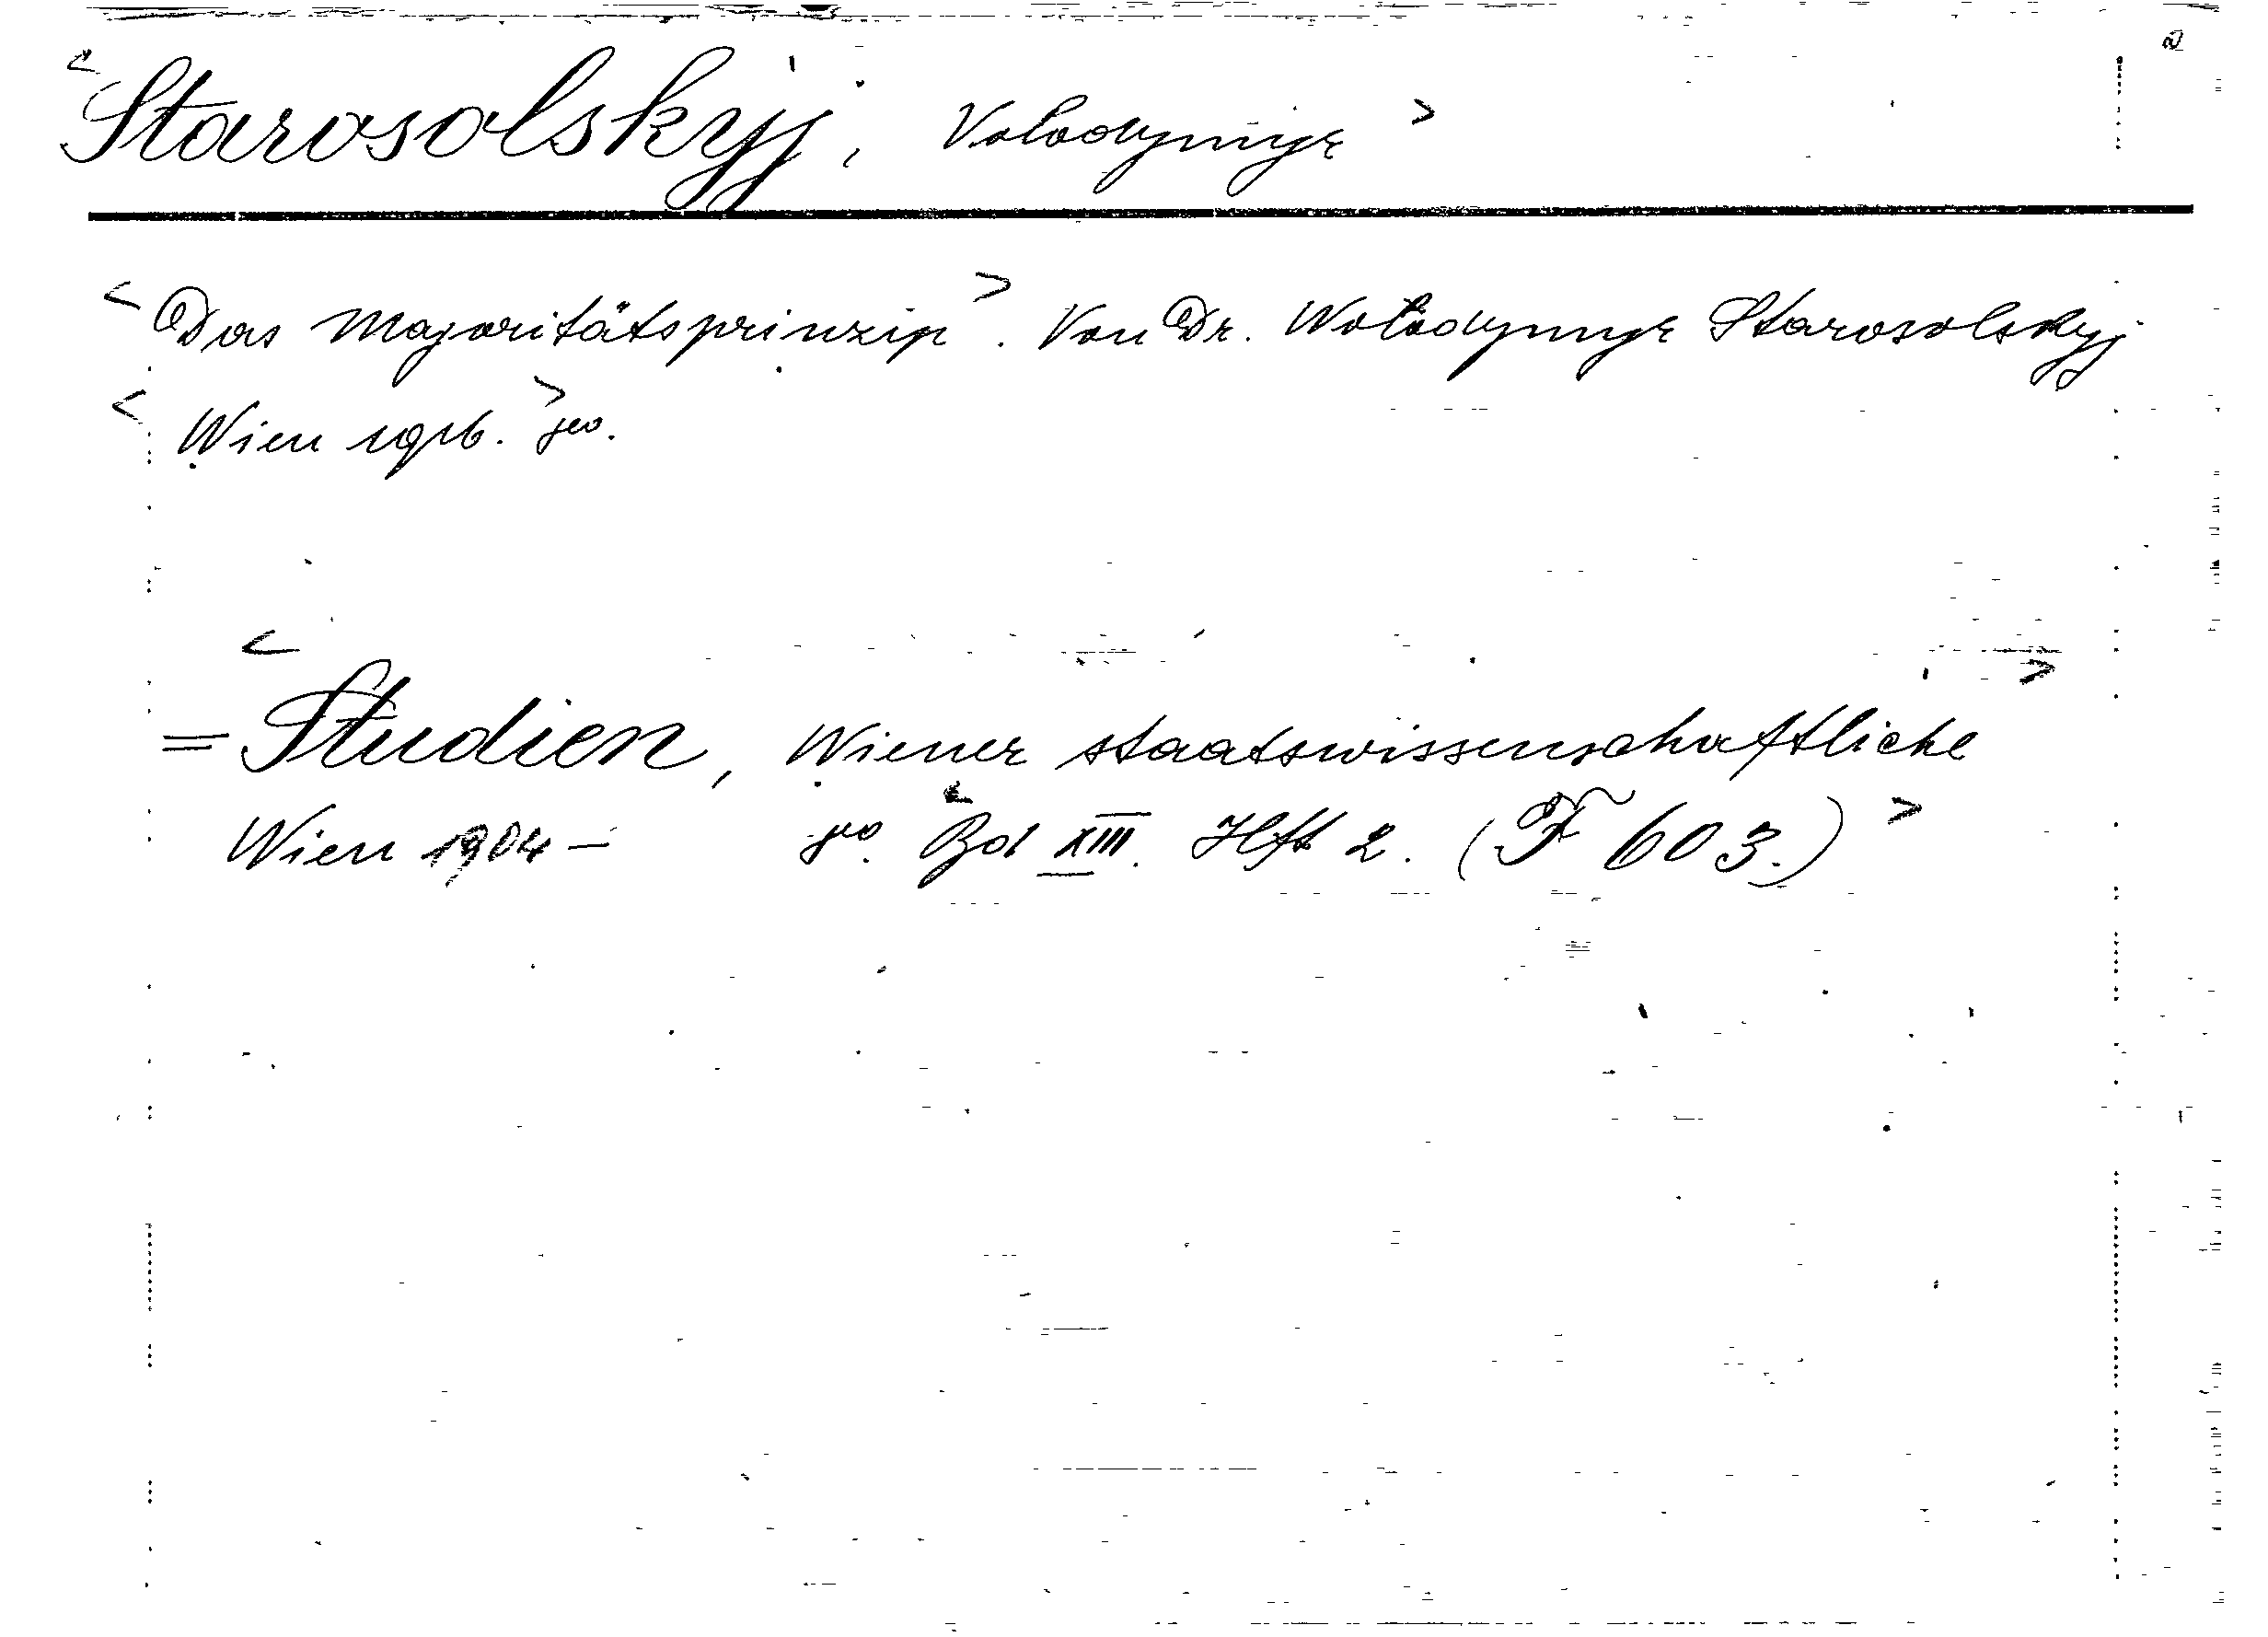 <Starosolskyj, Volodymyr>
<Das Majoritätsprinzip>. Von Dr. Wolodymyr Starosolskyj
<Wien 1916.> 8°.
<= Studien, Wiener staatswissenschaftliche>
Wien 1904 – 8°. <Bd XIII. Hft 2. (F 603.)>